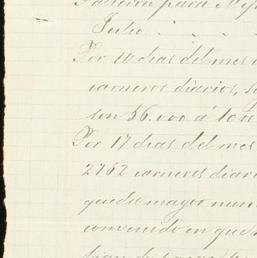 para
Julio
Por 14 dias del mes
carneros diarios,
son 56.000 á
Por 17 dias del mes
2762 carneros
queda mayor
convenido en que